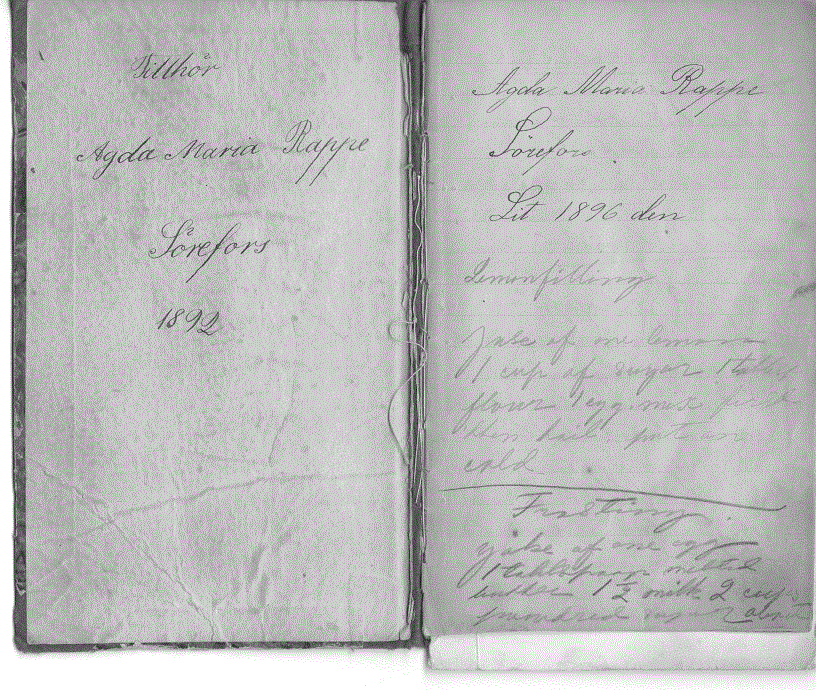 Tillhör
Agda Maria Rappe
Sörefors
1892
Agda Maria Rappe
Sörefors
Lit 1896 den
Lemonfilling
of one lemon
1 cup of sugar 1
flour 1 egg mix first
then put on
cold
Frosting.
yoke of one egg
1 tablespoon melted
butter 1 1/2 milk 2 cups
powdered sugar